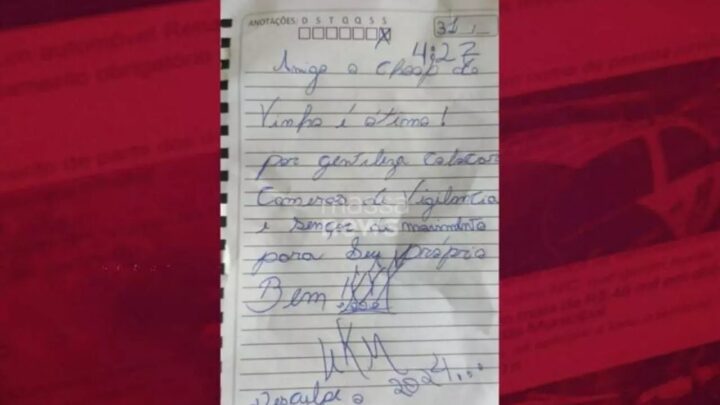 ANOTAÇÕES: D S T Q Q S S
31
4:27
Amigo o chopp de
Vinho é ótimo!
por gentileza colocar
Cameras de Vigilância
e sençor de movimento
para Seu Próprio
Bem
massa
news
2024...
Desculpe o